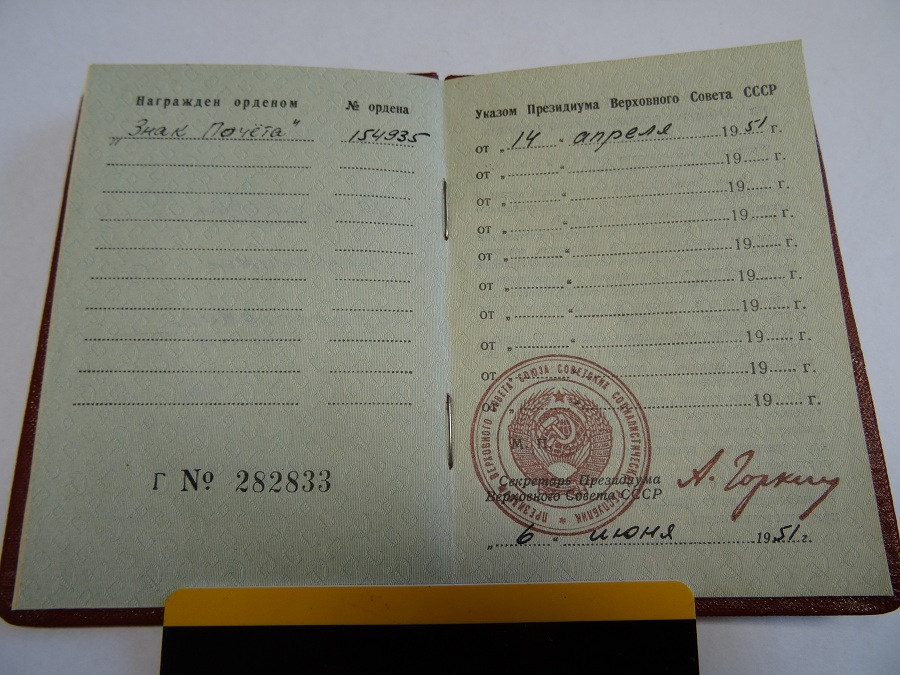 Награжден орденом
№ ордена
„Знак Почёта"
154935
Г № 282833
Указом Президиума Верховного Совета СССР
от „14" апреля 1951 г.
от „ " 19 г.
от „ " 19 г.
от „ " 19 г.
от „ " 19 г.
от „ " 19 г.
от „ " 19 г.
от „ " 19 г.
от „ " 19 г.
от „ " 19 г.
ПРЕЗИДИУМ ВЕРХОВНОГО СОВЕТА СОЮЗА СОВЕТСКИХ СОЦИАЛИСТИЧЕСКИХ РЕСПУБЛИК
М. П.
Секретарь Президиума
Верховного Совета СССР
А. Горкин
„6" июня 1951 г.